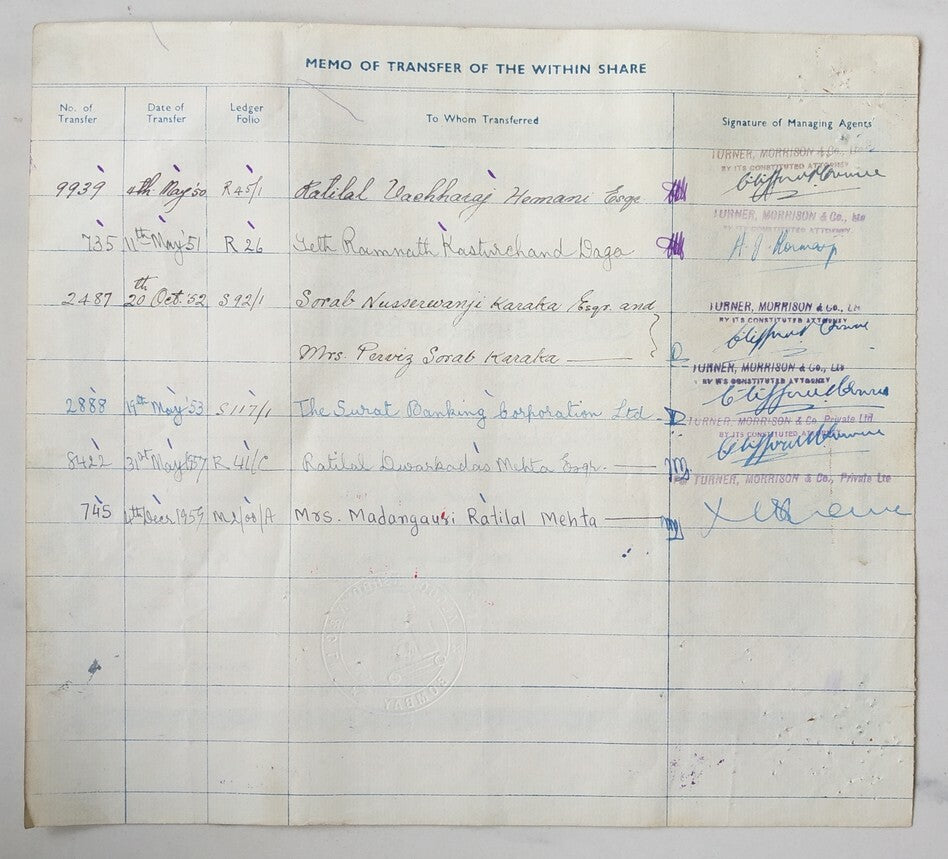 MEMO OF TRANSFER OF THE WITHIN SHARE
No. of Transfer Date of Transfer Ledger Folio To Whom Transferred Signature of Managing Agents
TURNER, MORRISON & Co., Ltd
BY ITS CONSTITUTED ATTORNEY
9939 4th May '50 R 45/1 Ratilal Vachharaj Hemani Esqr
TURNER, MORRISON & Co., Ltd
BY ITS CONSTITUTED ATTORNEY
735 11th May '51 R 26 Seth Ramnath Kasturchand Daga
2487 20th Oct. '52 S 92/1 Sorab Nusserwanji Karaka Esqr. and
TURNER, MORRISON & Co., Ltd
BY ITS CONSTITUTED ATTORNEY
Mrs. Perviz Sorab Karaka
TURNER, MORRISON & Co., Ltd
BY ITS CONSTITUTED ATTORNEY
2888 19th May '53 S117/1 The Surat Banking Corporation Ltd.
TURNER, MORRISON & Co. Private Ltd
BY ITS CONSTITUTED ATTORNEY
8422 31st May 1957 R 41/C Ratilal Dwarkadas Mehta Esqr.
TURNER, MORRISON & Co., Private Ltd
745 4th Decr 1959 Mrs. Madangauri Ratilal Mehta
BOMBAY